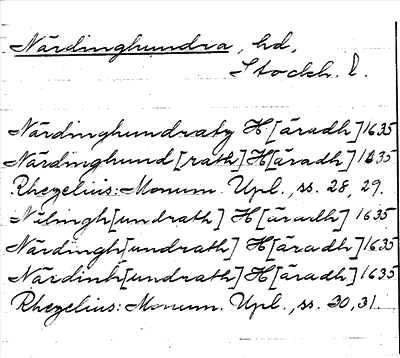 Närdinghundra, hd,
Stockh. l.
Närdinghundraty H[äradh] 1635
Närdinghund[rath] H[äradh] 1635
Rhezelius: Monum. Upl., ss. 28, 29.
Nälingh[undrath] H[äradh] 1635
Närdingh[undrath] H[äradh] 1635
Närdinh[undrath] H[äradh] 1635
Rhezelius: Monum. Upl., ss. 30, 31